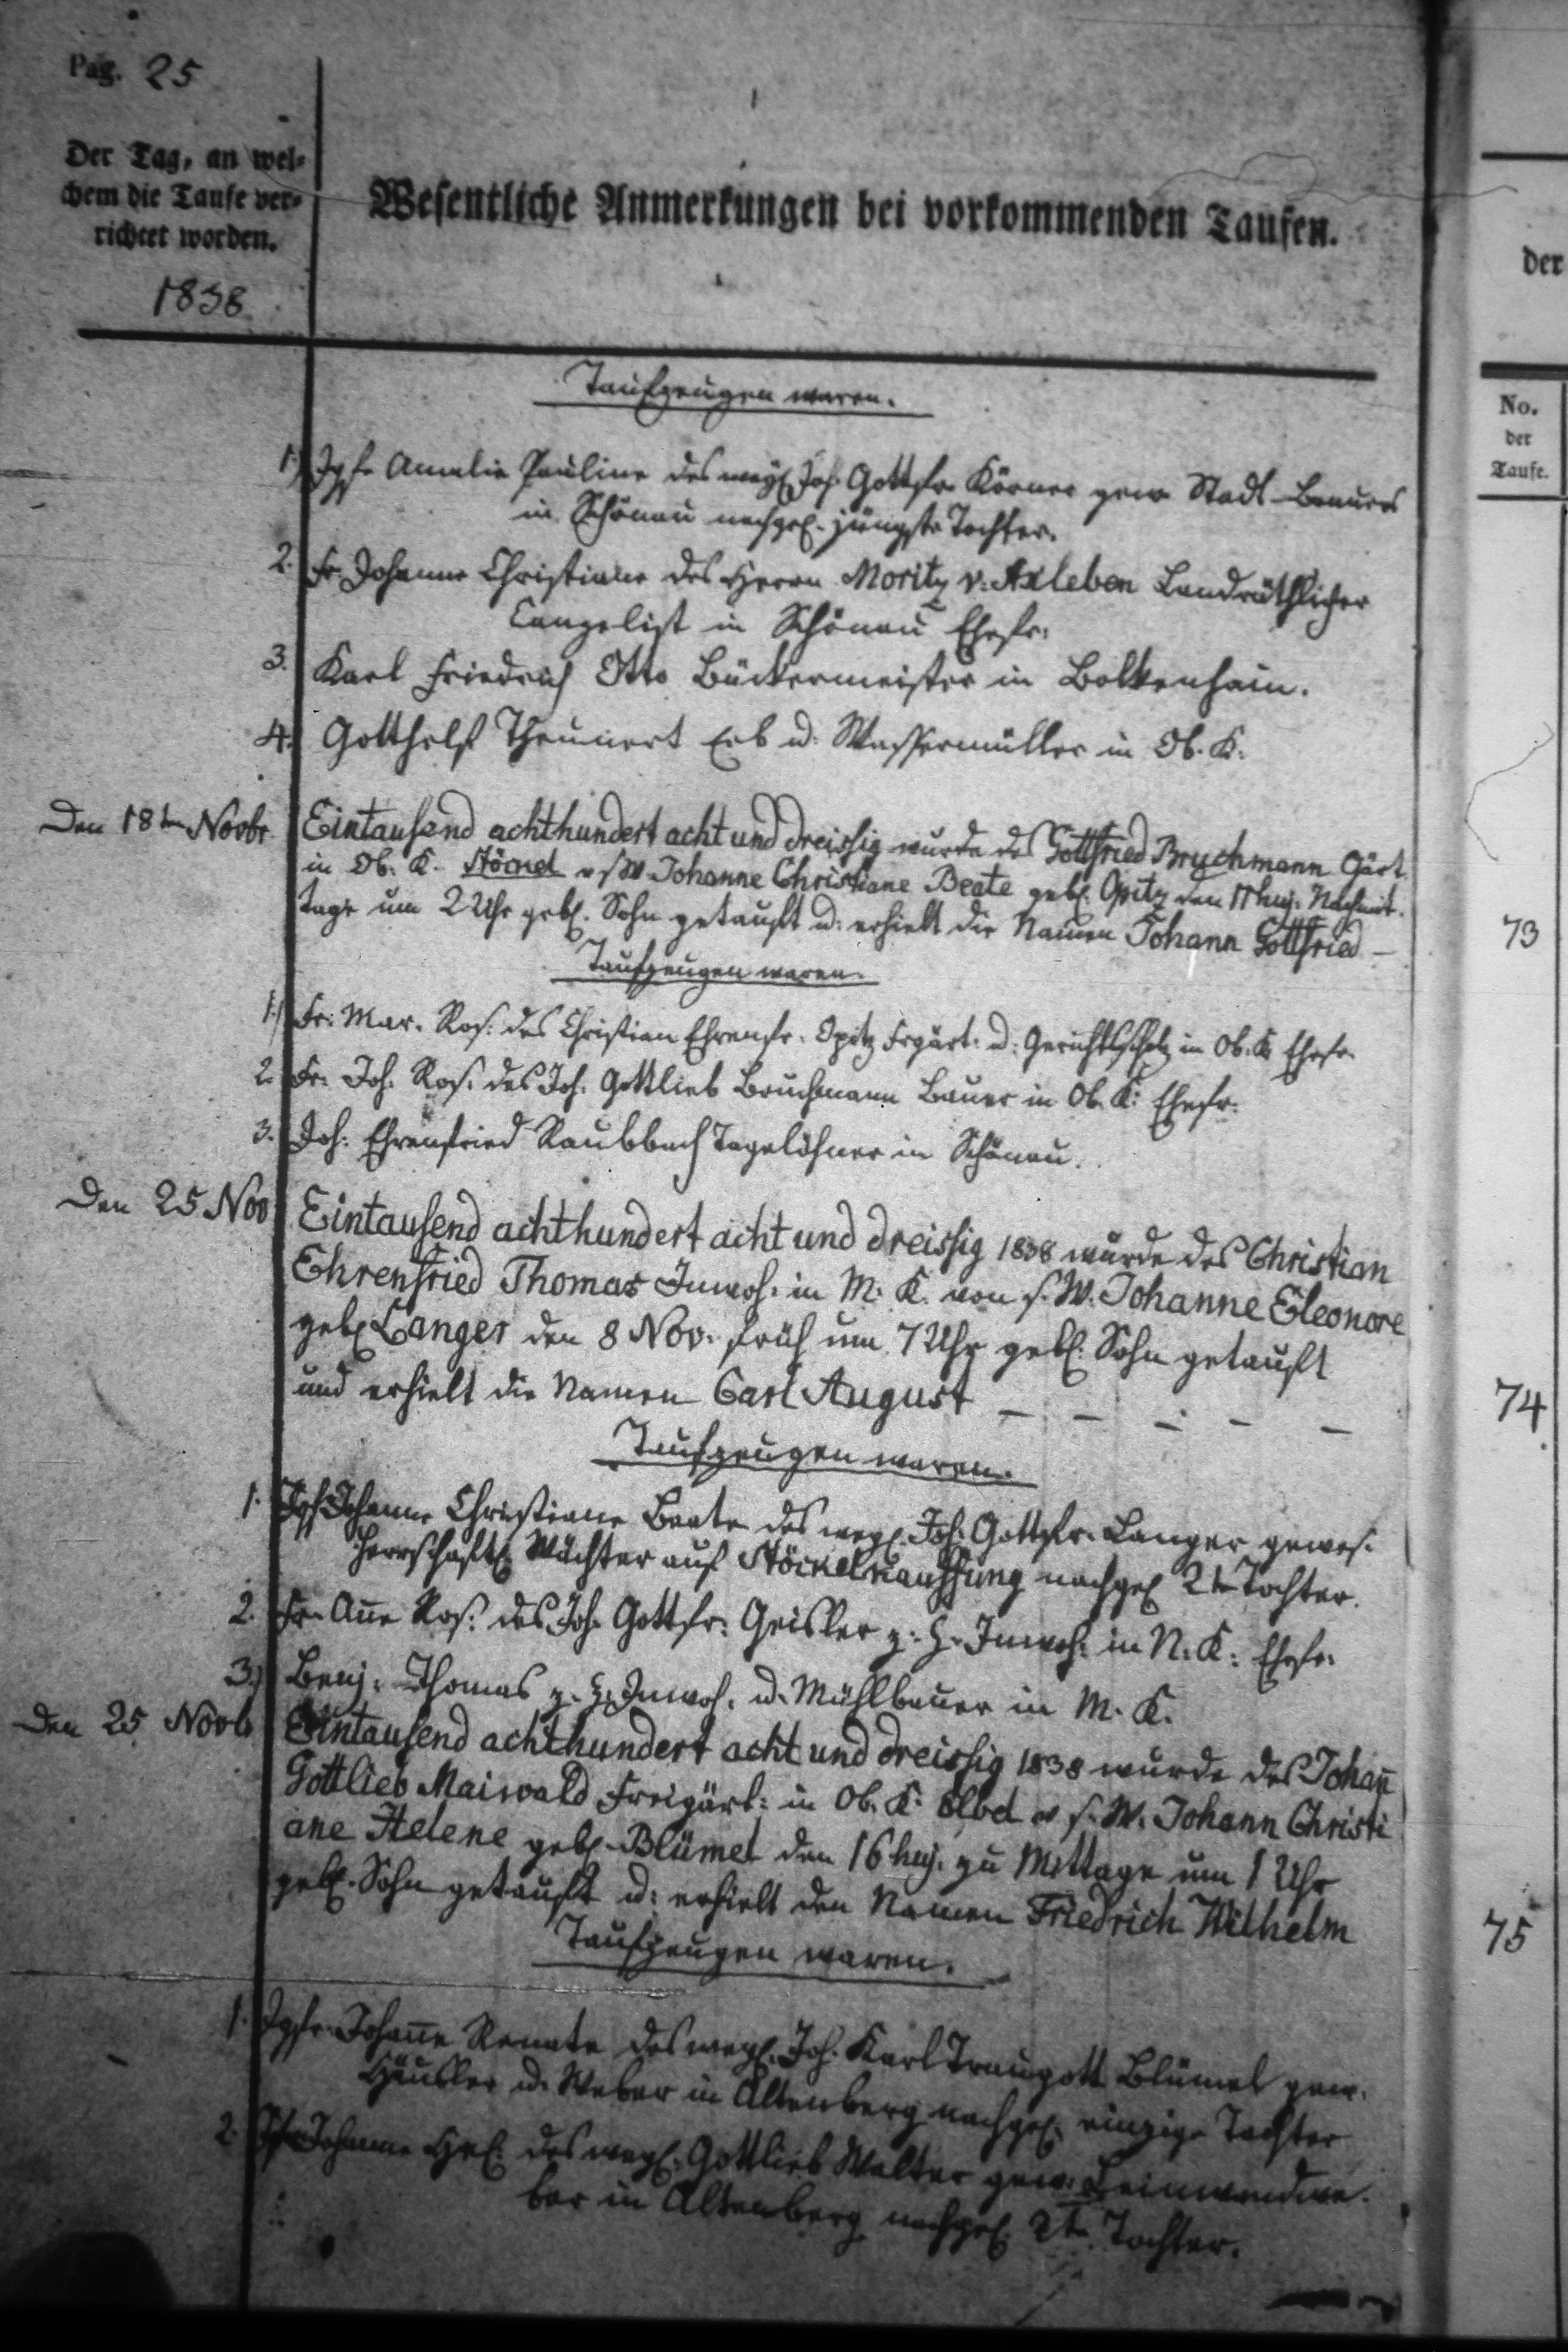 Pag. 25
Der Tag, an wel-
chem die Taufe ver-
richtet worden.
1838
Wesentliche Anmerkungen bei vorkommenden Taufen.
der
No.
der
Taufe.
Taufzeugen waren.
1.) Jgfr Amalie Pauline des weyl. Joh. Gottfr. Körner gew. Stadt-Brauers
in Schönau nachgel. jüngste Tochter.
2. Fr. Johanne Christiane des Herrn Moritz v. Axleben Landräthlicher
Cangelist in Schönau Ehefr.
3. Karl Friedrich Otto Bäckermeister in Bolkenhain.
4. Gotthelf Theunert Erb u. Wassermüller in Ob. K.
Den 18ten Novbr Eintausend achthundert acht und dreissig wurde des Gottfried Bruchmann Gärt.
in Ob. K. Stöckel v s. W. Johanne Christiane Beate geb. Opitz den 17 huj. Nachmit.
tags um 2 Uhr geb. Sohn getauft u. erhielt die Namen Johann Gottfried —
73
Taufzeugen waren.
1.) Fr. Mar. Ros. des Christian Ehrenfr. Opitz Frgärt. u. Gerichtsscholz in Ob. K. Ehefr.
2. Fr. Joh. Ros. des Joh. Gottlieb Bruchmann Bauer in Ob. K. Ehefr.
3. Joh. Ehrenfried Raubbach Tagelöhner in Schönau.
Den 25 Nov Eintausend achthundert acht und dreissig 1838 wurde des Christian
Ehrenfried Thomas Inwoh. in M. K. von s. W. Johanne Eleonore
geb. Langer den 8 Nov. früh um 7 Uhr geb. Sohn getauft
und erhielt die Namen Carl August — — — — —
74
Taufzeugen waren.
1. Jgf Johanne Christiane Beate des weyl. Joh. Gottfr. Langer gewes.
herrschaftl. Wächter auf Stöckelkauffung nachgel. 2te Tochter.
2. Fr. Anne Ros. des Joh. Gottfr. Geisler z. H. Inwoh. in N. K. Ehefr.
3.) Benj. Thomas z. H. Inwoh. u. Mühlbauer in M. K.
Den 25 Novb Eintausend achthundert acht und dreissig 1838 wurde des Johan̄
Gottlieb Maiwald Freigärt. in Ob. K. Elbel v s. W. Johann Christi
ane Helene geb. Blümel den 16 huj. zu Mittage um 1 Uhr
geb. Sohn getauft u. erhielt den Namen Friedrich Wilhelm
75
Taufzeugen waren.
1. Jgfr. Johan̄e Renate des weyl. Joh. Karl Traugott Blümel gew.
Häusler u. Weber in Altenberg nachgel. einzige Tochter
2. Jfr Johanne Hel. des weyl. Gottlieb Walter gew. Leinwandwe.
ber in Altenberg nachgel. 2te Tochter.